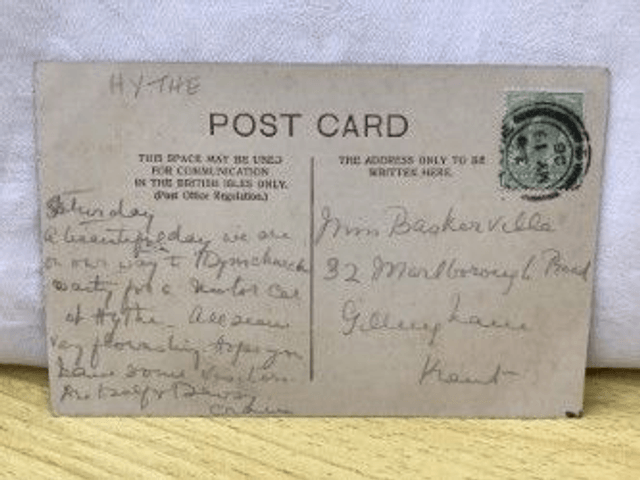 HYTHE
POST CARD
THIS SPACE MAY BE USED
FOR COMMUNICATION
IN THE BRITISH ISLES ONLY.
(Post Office Regulation.)
THE ADDRESS ONLY TO BE
WRITTEN HERE.
MY 19
06
Saturday
A beautiful day we are
on our way to Dymchurch
waiting for a motor car
at Hythe.
hope you
have some visitors
Miss Baskerville
32 Marlborough Road
Gillingham
Kent